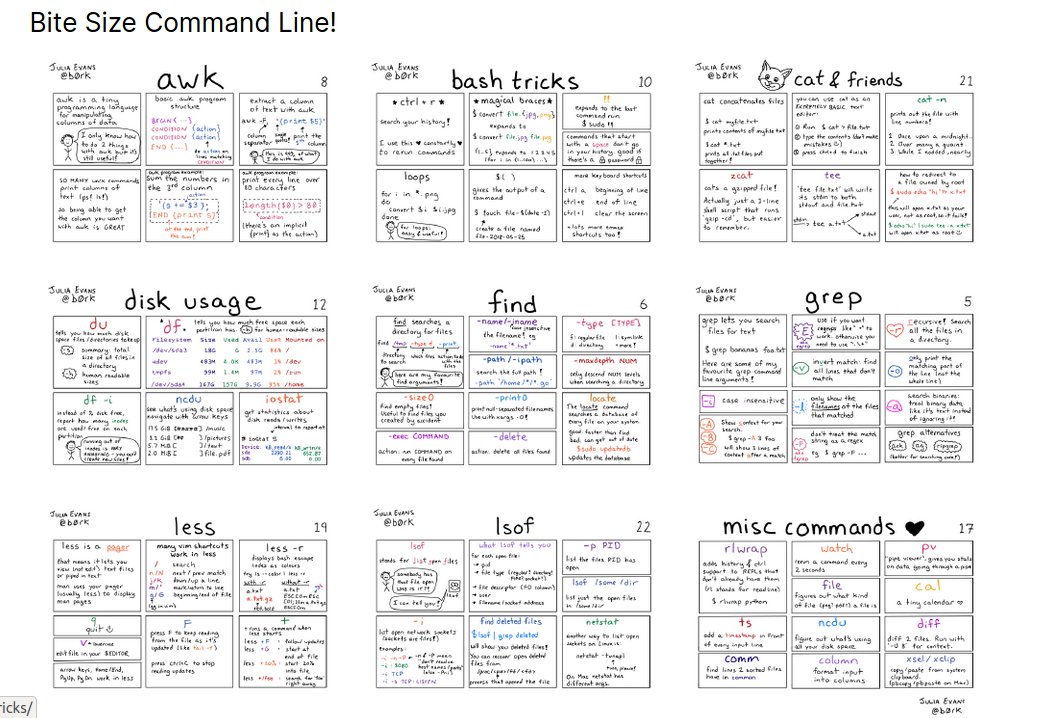 Bite Size Command Line!
JULIA EVANS
@b0rk
awk
8
awk is a tiny
programming language
for manipulating
columns of data
I only know how
to do 2 things
with awk but it's
still useful!
basic awk program
structure
BEGIN {...}
CONDITION {action}
CONDITION {action}
END {...}
do action on
lines matching
CONDITION
extract a column
of text with awk
awk -F, '{print $5}'
column
separator
single
quotes!
print the
5th
column
SO MANY unix commands
print columns of
text (ps! ls!)
so being able to get
the column you want
with awk is GREAT
awk program example:
sum the numbers in
the 3rd column
action
{s += $3};
END {print s}
at the end, print
the sum!
awk program example:
print every line over
80 characters
length($0) > 80
condition
(there's an implicit
{print} as the action)
JULIA EVANS
@b0rk
bash tricks
10
* ctrl + r *
search your history!
I use this ♥ constantly ♥
to rerun commands
* magical braces *
$ convert file.{jpg,png}
expands to
$ convert file.jpg file.png
{1..5} expands to 1 2 3 4 5
!!
expands to the last
command run
$ sudo !!
commands that start
with a space don't go
in your history. good if
there's a password
loops
for i in *.png
do
convert $i $i.jpg
done
for loops:
easy & useful!
$( )
gives the output of a
command
$ touch file-$(date -I)
create a file named
file-2018-05-25
more keyboard shortcuts
ctrl a beginning of line
ctrl+e end of line
ctrl+l clear the screen
+ lots more emacs
shortcuts too!
JULIA EVANS
@b0rk
cat & friends
21
cat concatenates files
$ cat myfile.txt
prints contents of myfile.txt
$ cat *.txt
prints all .txt files put
together!
you can use cat as an
EXTREMELY BASIC text
editor:
① Run $ cat > file.txt
② type the contents (don't make
mistakes)
③ press ctrl+d to finish
cat -n
prints out the file with
line numbers!
1 Once upon a midnight..
2 Over many a quaint..
3 While I nodded, nearly
zcat
cats a gzipped file!
Actually just a 1-line
shell script that runs
`gzip -cd`, but easier
to remember.
tee
'tee file.txt' will write
its stdin to both
stdout and file.txt
stdin
tee a.txt
stdout
a.txt
how to redirect to
a file owned by root
$ sudo echo "hi" >> x.txt
this will open x.txt as your
user, not as root, so it fails!
$ echo "hi" | sudo tee -a x.txt
will open x.txt as root
JULIA EVANS
@b0rk
disk usage
12
du
tells you how much disk
space files / directories take up
-s
summary: total
size of all files in
a directory
-h
human readable
sizes
df
tells you how much free space each
partition has. -h for human-readable sizes
Filesystem Size Used Avail Use% Mounted on
df -i
instead of % disk free,
report how many inodes
are used / free on each
partition
running out
of inodes is VERY
ANNOYING - you can't
create new files!
ncdu
see what's using disk space
navigate with arrow keys
iostat
get statistics about
disk reads / writes
interval to report at
# iostat 5
JULIA EVANS
@b0rk
find
6
find searches a
directory for files
find /tmp -type d -print
directory
to search
which files
action to do
with the files
here are my favourite
find arguments!
-name/-iname
case insensitive
the filename! eg
-name '*.txt'
-path/-ipath
search the full path!
-path '/home/*/*.go'
-type [TYPE]
f: regular file l: symlink
d: directory + more!
-maxdepth NUM
only descend NUM levels
when searching a directory
-size 0
find empty files!
Useful to find files you
created by accident
-exec COMMAND
action: run COMMAND on
every file found
-print0
print null-separated filenames
Use with xargs -0!
-delete
action: delete all files found
locate
The locate command
searches a database of
every file on your system
good: faster than find
bad: can get out of date
$ sudo updatedb
updates the database
JULIA EVANS
@b0rk
grep
5
grep lets you search
files for text
$ grep bananas foo.txt
Here are some of my
favourite grep command
line arguments!
-E
aka
egrep
Use if you want
regexps like ".+" to
work. otherwise you
need to use ".\+"
-r
recursive! Search
all the files in
a directory.
-v
invert match: find
all lines that don't
match
-o
only print the
matching part of
the line (not the
whole line)
-i
case insensitive
-l
only show the
filenames of the files
that matched
-a
search binaries:
treat binary data
like it's text instead
of ignoring it!
-A
-B
-C
Show context for your
search.
$ grep -A 3 foo
will show 3 lines of
context after a match
-F
aka
fgrep
don't treat the match
string as a regex
eg $ grep -F ...
grep alternatives
ack
ag
ripgrep
(better for searching code!)
JULIA EVANS
@b0rk
less
19
less is a pager
that means it lets you
view (not edit) text files
or piped in text
man uses your pager
(usually less) to display
man pages
many vim shortcuts
work in less
/ search
n/N next / prev match
j/k down/up a line
m/' mark/return to line
g/G beginning/end of file
(gg in vim)
less -r
displays bash escape
codes as colours
try ls --color | less -r
with -r
a.txt
a.txt.gz
without -r
q
quit
v
edit file in your $EDITOR
arrow keys, Home/End,
PgUp, PgDn work in less
F
press F to keep reading
from the file as it's
updated (like tail -f)
press ctrl+C to stop
reading updates
+
+ runs a command when
less starts
less +F : follow updates
less +G : start at
end of file
less +20% : start 20%
into file
less +/foo : search for 'foo'
right away
JULIA EVANS
@b0rk
lsof
22
lsof
stands for list open files
somebody has
that file open
WHO IS IT?!
I can tell you!
lsof
what lsof tells you
for each open file:
→ pid
→ file type (regular? directory?
FIFO? socket?)
→ file descriptor (FD column)
→ user
→ filename/socket address
-p PID
list the files PID has
open
lsof /some/dir
list just the open files
in /some/dir
-i
list open network sockets
(sockets are files!)
examples:
-i -n -P
-i :8080
-i TCP
-i -s TCP:LISTEN
find deleted files
$ lsof | grep deleted
will show you deleted files!
You can recover open deleted
files from
/proc/<pid>/fd/<fd>
process that opened the file
netstat
another way to list open
sockets on Linux is:
netstat -tunapl
tuna, please!
On Mac netstat has
different args.
misc commands ♥
17
rlwrap
adds history & ctrl
support to REPLs that
don't already have them
(rl stands for readline)
$ rlwrap python
watch
rerun a command every
2 seconds
file
figures out what kind
of file (png? pdf?) a file is
pv
"pipe viewer", gives you stats
on data going through a pipe
cal
a tiny calendar ♡
ts
add a timestamp in front
of every input line
ncdu
figure out what's using
all your disk space
diff
diff 2 files. Run with
-U 8 for context.
comm
find lines 2 sorted files
have in common
column
format input
into columns
xsel/xclip
copy/paste from system
clipboard.
(pbcopy/pbpaste on Mac)
JULIA EVANS
@b0rk
ricks/